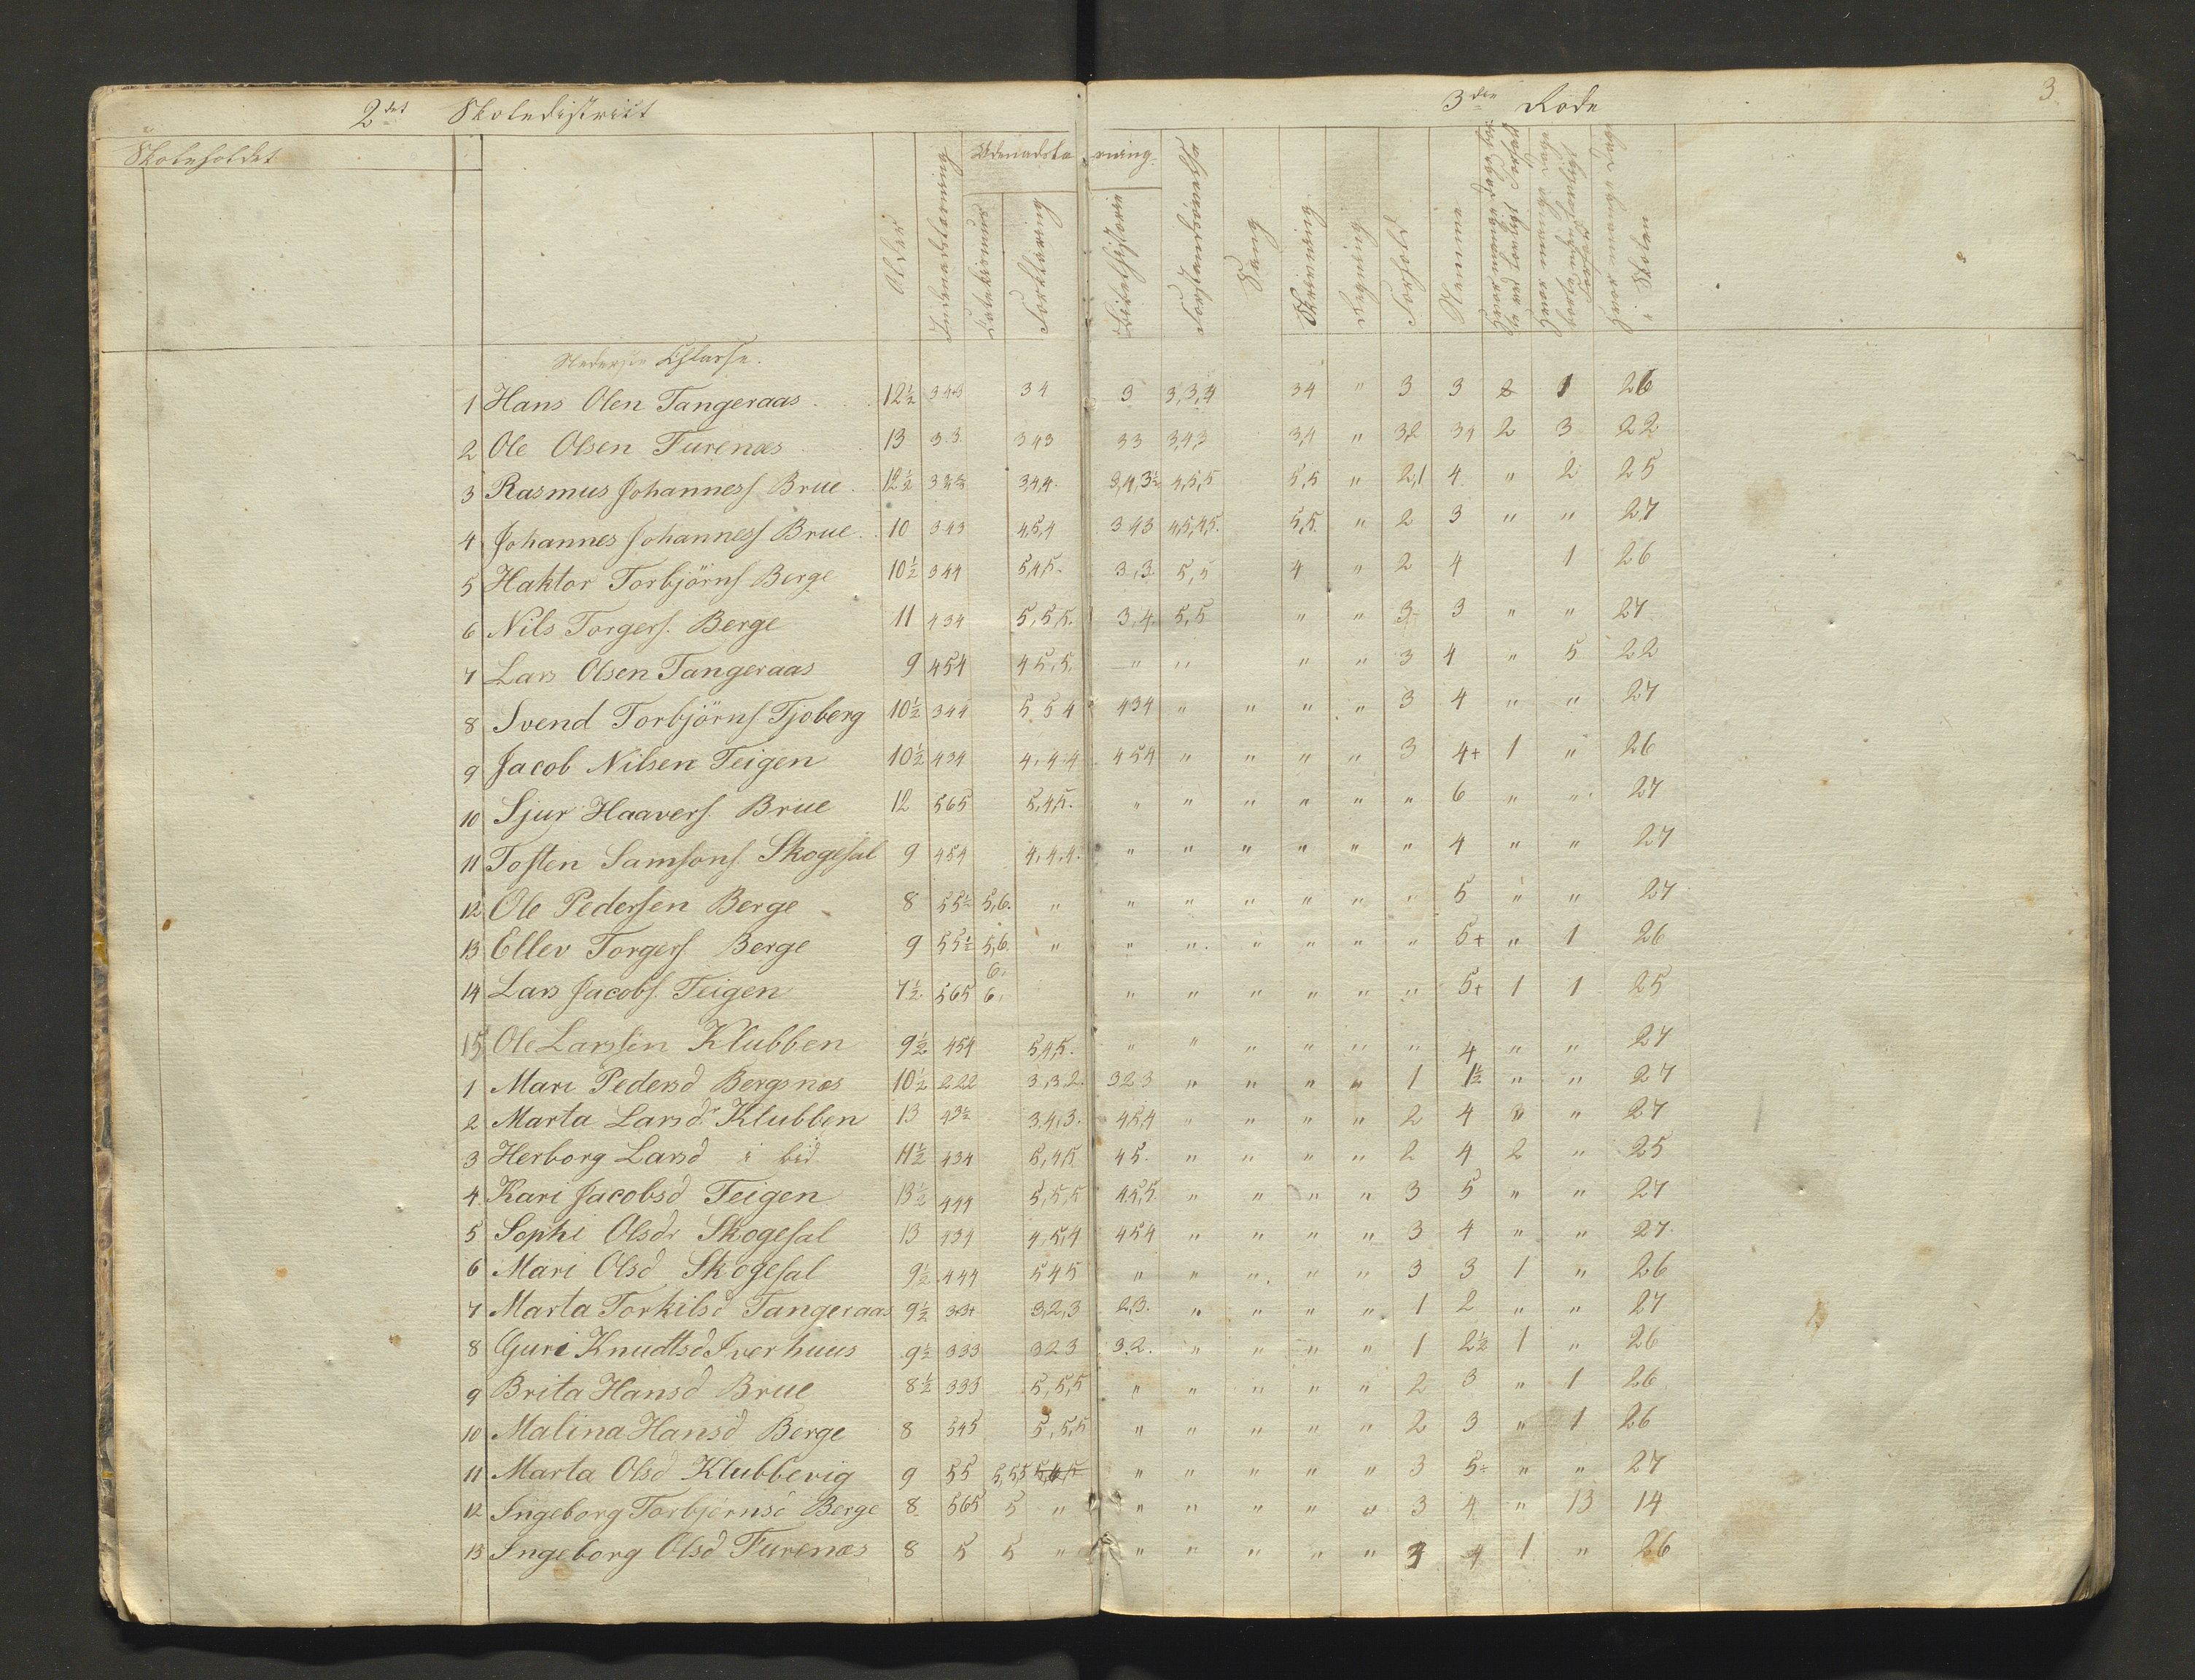 2det Skoledistrict
3die Rode
3
Skoleholdet
Alder
Indenadslæsning
Udenadslæsning
Katekismus
Forklaring
Bibelhistorie
Forstandsövelse
Sang
Skrivning
Regning
Forhold
Nemme
Hvor mange Dage
Hvor mange Dage borte uden lovligt Forfald
Hvor mange Dage i Skolen
Nederste Classe.
1 Hans Olen Tangeraas 12½ 343 34 3 3,3,4 34 " 3 3 2 1 26
2 Ole Olsen Furenæs 13 3.3. 343 33 3,4,3 3,4 " 3,2 34 2 3 22
3 Rasmus Johanness Brue 12½ 3,4,4. 3,4,3½ 4,5,5 5,5 " 2,1 4 " 2 25
4 Johannes Johanness Brue 10 343 4,5,4 343 4,5,4,5. 5,5. " 2 3 " " 27
5 Haktor Torbjörns Berge 10½ 344 5,4,5. 3,3. 5,5 4 " 2 4 1 26
6 Nils Torgers. Berge 11 434 5,5,5. 3,4. 5,5 " " 3 3 " " 27
7 Lars Olsen Tangeraas 9 454 45,5. " " " " 3 4 " 5 22
8 Svend Torbjörns Tjoberg 10½ 344 5 5 4 434 " " " " 3 4 " " 27
9 Jacob Nilsen Teigen 10½ 434 4,4,4 454 " " " " 3 4+ 1 " 26
10 Sjur Haavers. Brue 12 565 5,4,5. " " " " " " 6 " " 27
11 Tosten Samsons. Skogesal 9 454 4,4,4. " " " " " " 4 " " 27
12 Ole Pedersen Berge 8 55½ 5,6. " " " " " " " 5 " " 27
13 Ellev Torgers Berge 9 55½ 5,6. " " " " " " " 5+ " 1 26
14 Lars Jacobs. Teigen 7½ 565 6. 6. " " " " " " 5+ 1 1 25
15 Ole Larssen Klubben 9½ 454 5,4,5. " " " " " " 4 " " 27
1 Mari Pedersd Bergsnæs 10½ 222 3,3,2. 323 " " " " 1 1½ " " 27
2 Marta Larsdr Klubben 13 43½ 3,4,3. 4,5,4 " " " " 2 4 " " 27
3 Herborg Larsd i bid 11½ 434 5,4,5 45. " " " " 2 4 2 " 25
4 Kari Jacobsd Teigen 13½ 444 5,5,5 4,5,5. " " " " 3 5 " " 27
5 Sophi Olsdr Skogesal 13 434 4,5,4 454 " " " " 3 4 " " 27.
6 Mari Olsd Skogesal 9½ 444 545 " " " " " 3 3 1 " 26
7 Marta Torkilsd Tangeraas 9½ 3,2,3 2,3. " " " " 1 2 " " 27
8 Guri Knudtsd Iverhuus 9½ 333 323 3.2. " " " " 1 2½ 1 " 26
9 Brita Hansd Brue 8½ 333 5,5,5 " " " " " 2 3 " 1 26
10 Malina Hansd Berge 8 545 5,5,5 " " " " " 2 3 " 1 26
11 Marta Olsd Klubbevig 9 55 5,5,5 " " " " " 3 5+ " " 27
12 Ingeborg Torbjörnsd Berge 8 565 5 " " " " " " 3 4 " 13 14
13 Ingeborg Olsd Furenæs 8 5 5 " " " " " " 3 4 1 " 26